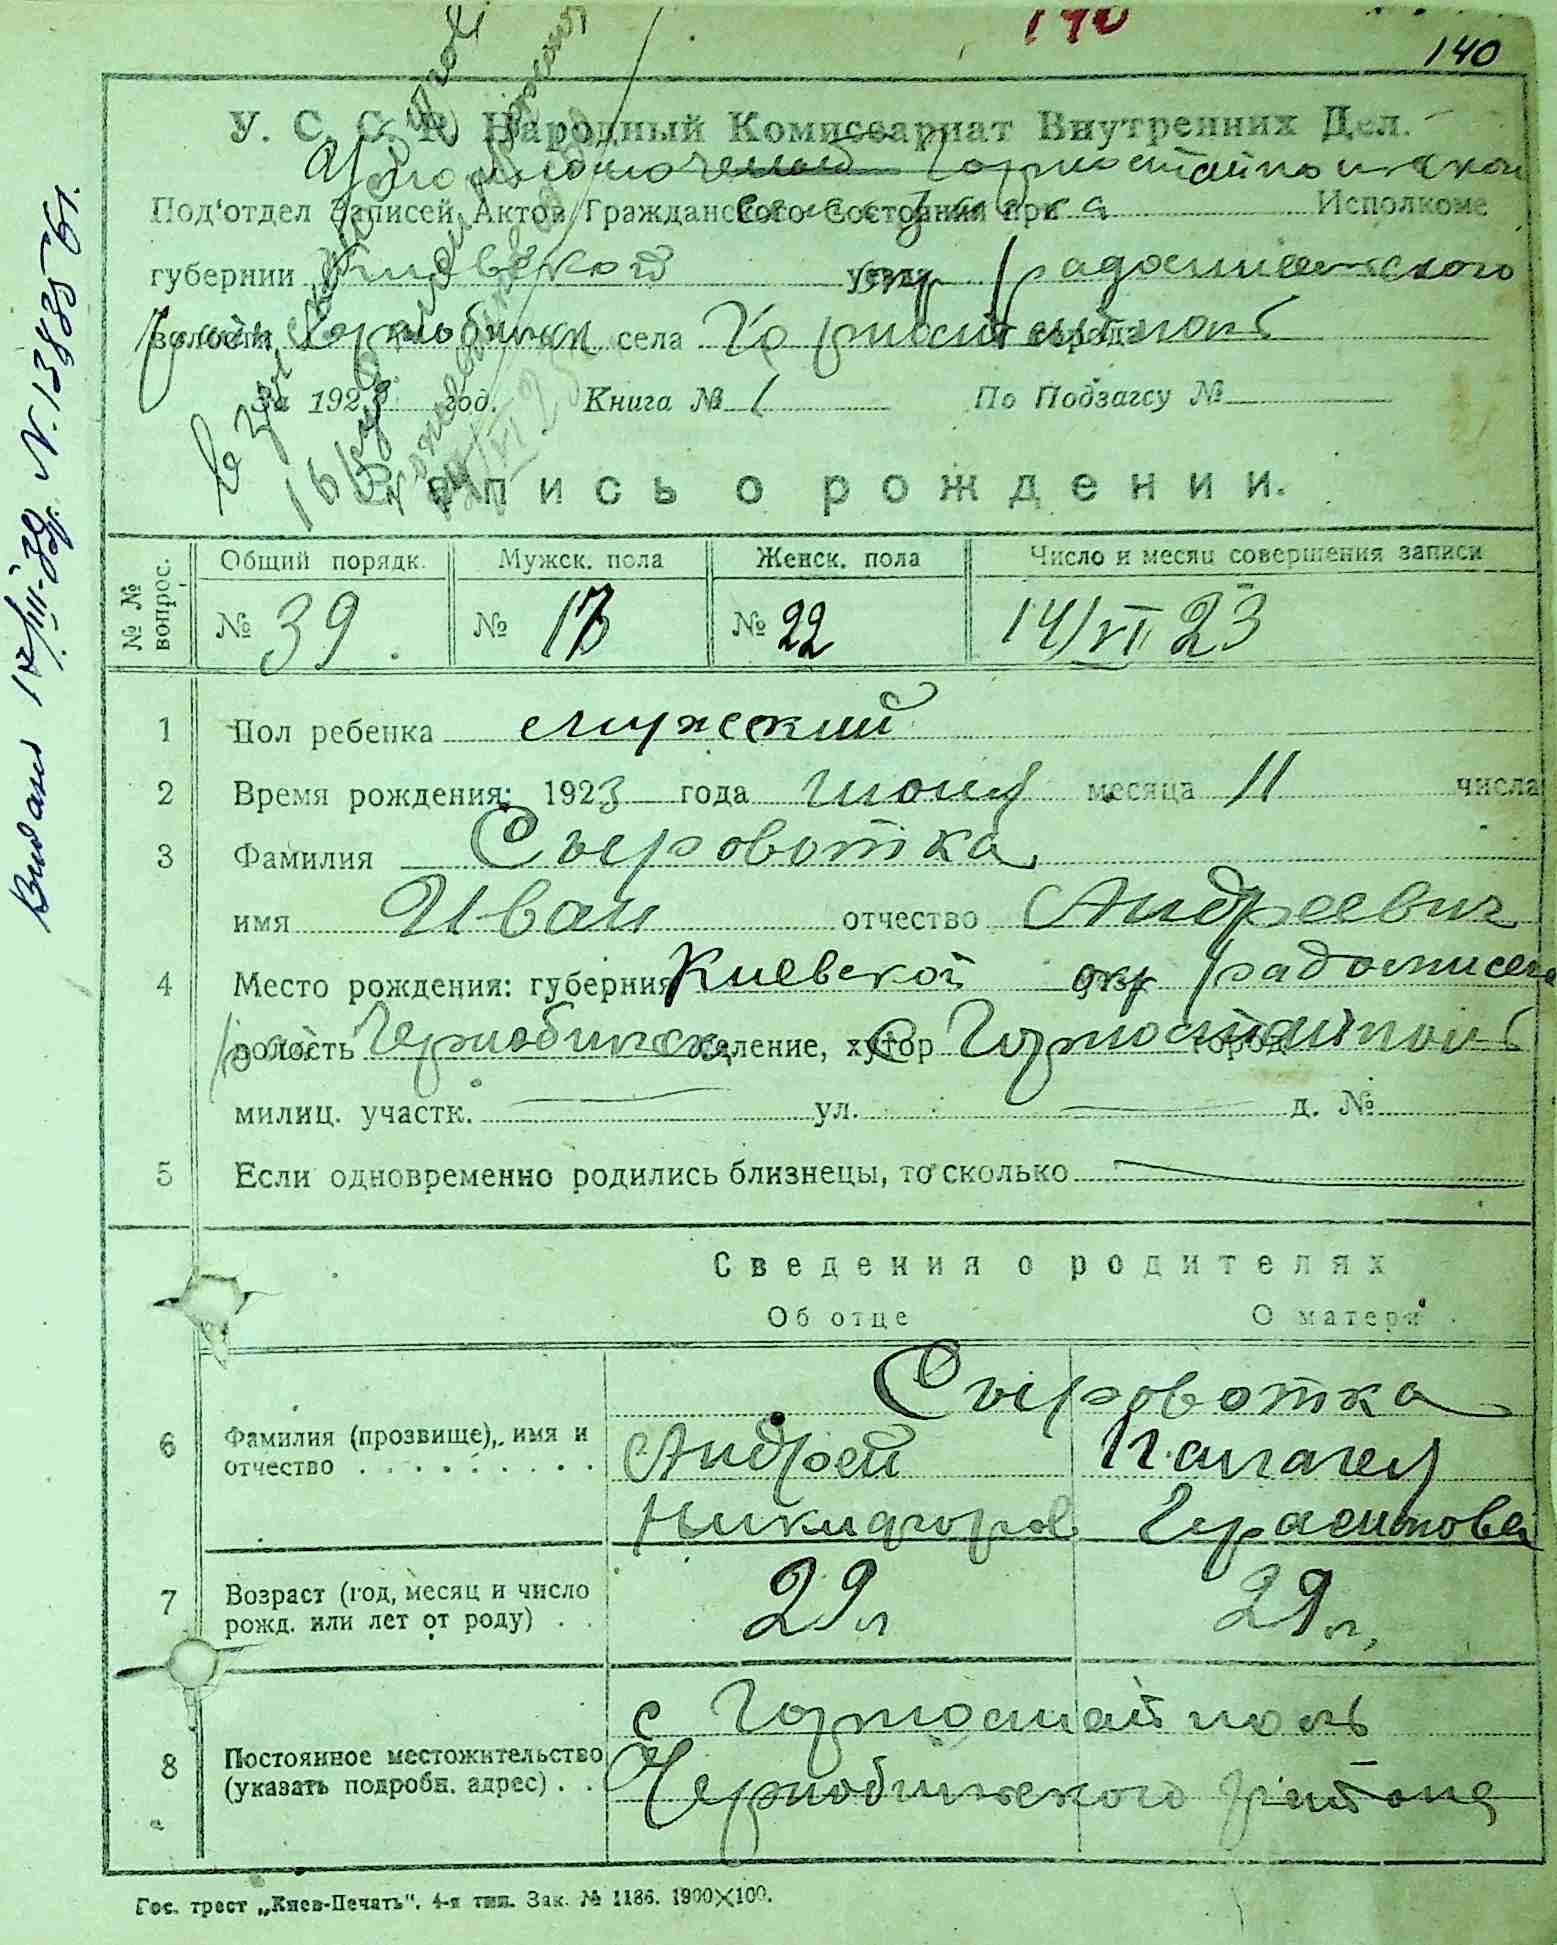 140
140
У. С. С. Р. Народный Комиссариат Внутренних Дел.
Уполномоченый Горностайпольской
Под'отдел Записей Актов Гражданского Состояния при Исполкоме
губернии Киевской окр Радомисельского
волости села Горностайполь города
За 1923 год. Книга № 1 По Подзагсу №
Запись о рождении.
№ № вопрос.
Общий порядк. Мужск. пола Женск. пола Число и месяц совершения записи
№ 39. № 17 № 22 14/VI 23
1 Пол ребенка мужской
2 Время рождения: 1923 года июня месяца 11 числа
3 Фамилия Сыроватка
имя Иван отчество Андреевич
4 Место рождения: губерния Киевской окр Радомисел
волость селение, хутор с Горностайполь город
милиц. участк. ул. д. №
5 Если одновременно родились близнецы, то сколько
Сведения о родителях
Об отце О матери
Сыроватка
6 Фамилия (прозвище), имя и отчество Андрей Палагея
Никифоров Герасимова
7 Возраст (год, месяц и число рожд. или лет от роду) 29 л 29 л,
с Горностайполь
8 Постоянное местожительство (указать подробн. адрес) Чернобильского района
Гос. трест „Киев-Печать". 4-я тип. Зак. № 1186. 1900×100.